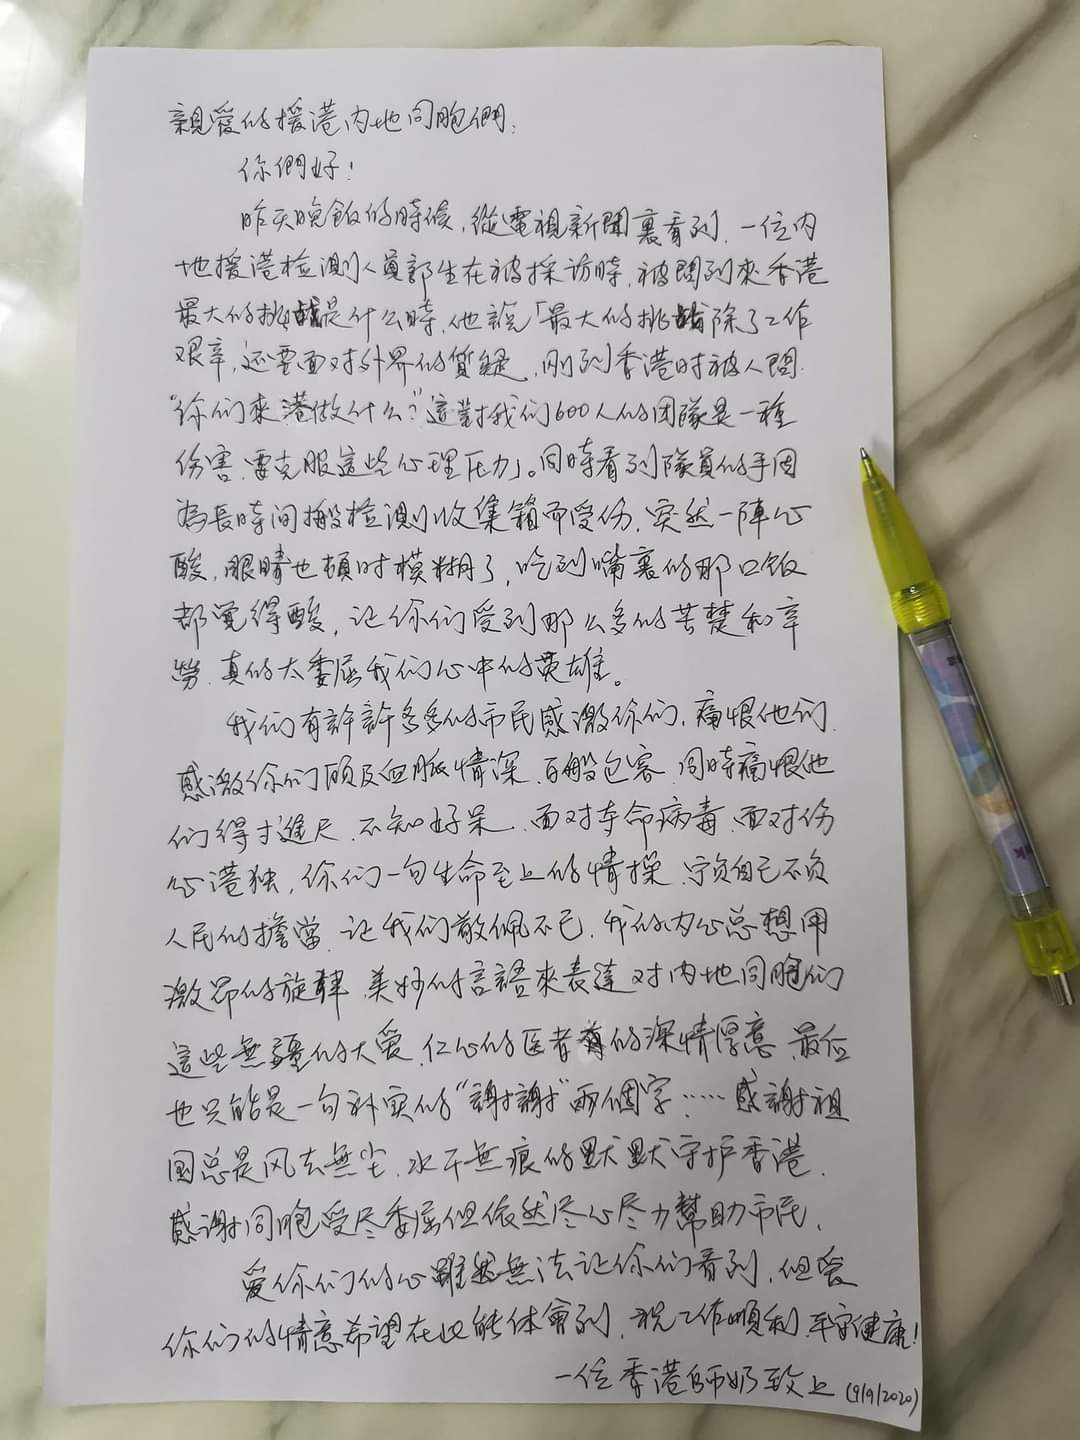 親愛的援港内地同胞們：
你們好！
昨天晚飯的時候，從電視新聞裏看到，一位内
地援港检測人員郭生在被採訪時，被問到來香港
最大的挑戰是什么時，他說「最大的挑戰除了工作
艰辛，还要面对外界的質疑，刚到香港时被人問：
“你们來港做什么？”這對我们600人的团隊是一種
伤害，要克服這些心理压力」。同時看到隊員的手因
為長時间搬检測收集箱而受伤，突然一陣心
酸，眼睛也頓时模糊了，吃到嘴裏的那口飯
都覺得酸，让你们受到那么多的苦楚和辛
勞，真的太委屈我们心中的英雄。
我们有許許多多的市民感激你们，痛恨他们，
感激你们顾及血脈情深，百般包容，同時痛恨他
们得寸進尺，不知好呆，面对夺命病毒，面对伤
心港独，你们一句生命至上的情操，宁负自己不负
人民的擔當，让我们敬佩不已，我的内心总想用
激昂的旋律，美妙的言語來表達对内地同胞们
這些無疆的大愛，仁心的医者的深情厚意，最后
也只能是一句朴实的“謝謝”兩個字……感謝祖
国总是风去無尘，水干無痕的默默守护香港，
感謝同胞受尽委屈但依然尽心尽力幫助市民，
愛你们的心雖然無法让你们看到，但愛
你们的情意希望在此能体會到，祝工作順利，平安健康！
一位香港師奶致上（9/9/2020）